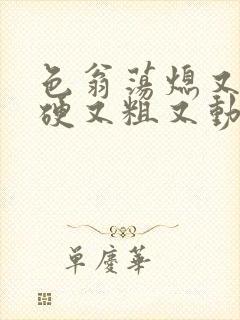 色翁荡熄又
硬又粗又動
单慶華